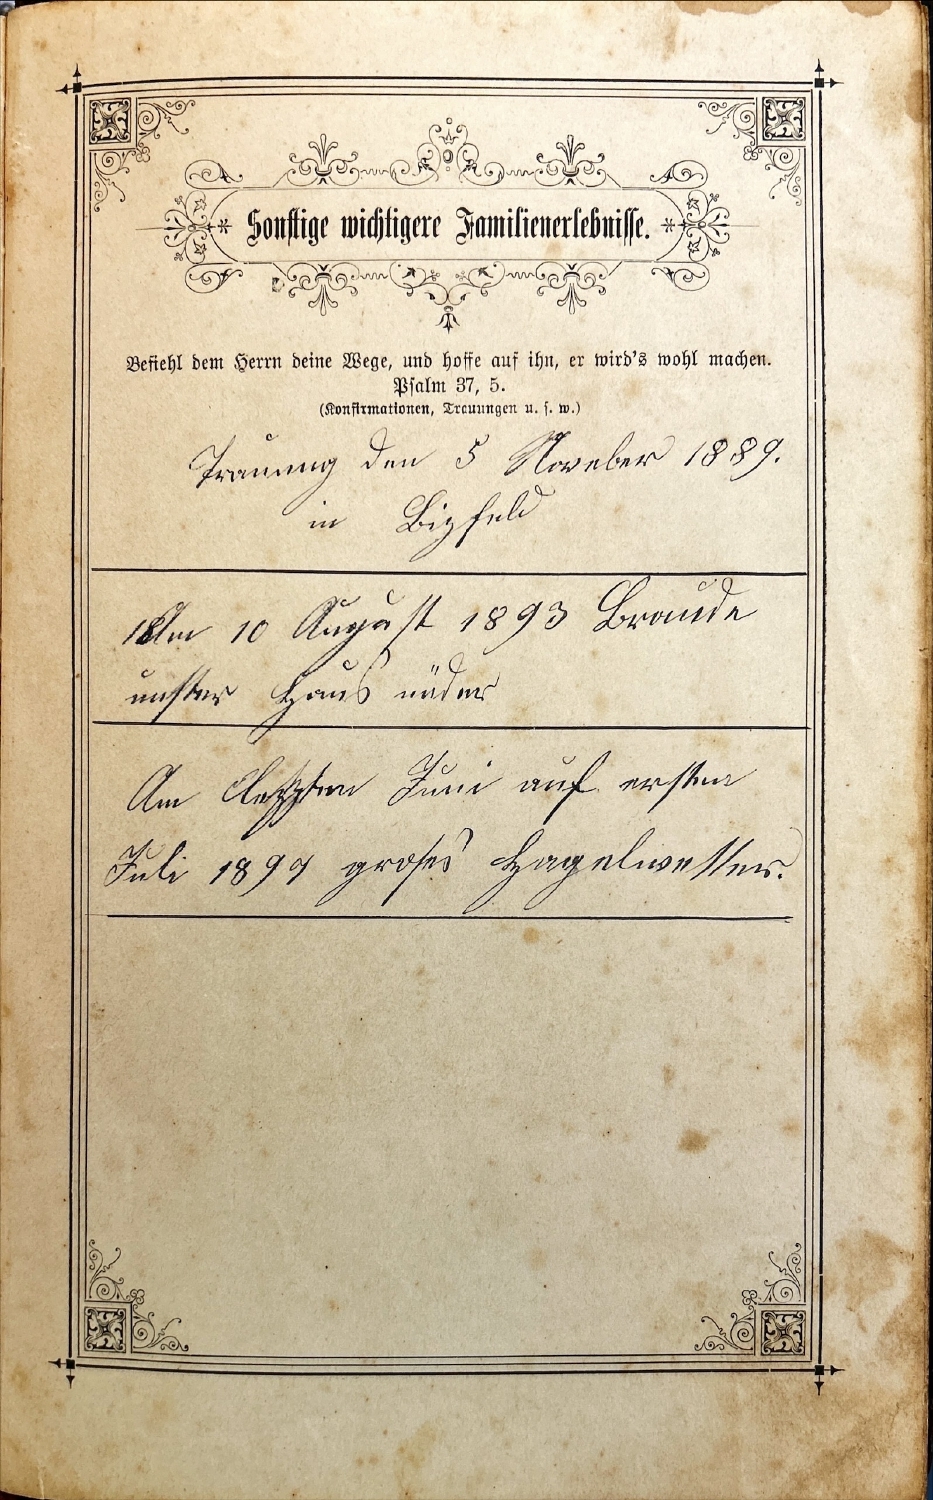 Sonstige wichtigere Familienerlebnisse.
Befiehl dem Herrn deine Wege, und hoffe auf ihn, er wird's wohl machen.
Psalm 37, 5.
(Konfirmationen, Trauungen u. s. w.)
Trauung den 5 Noveber 1889.
in Bizfeld
Am 10 August 1893 Brande
unster Haus näder
Am letzten Juni auf ersten
Juli 1897 groses Hagelwetter.